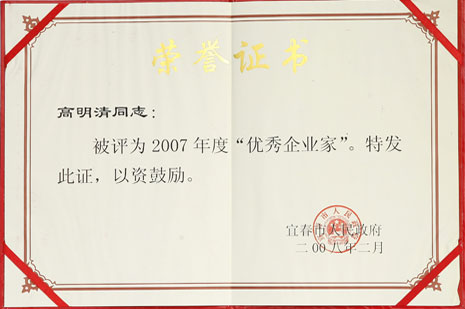 荣誉证书
高明清同志：
被评为2007年度“优秀企业家”。特发
此证，以资鼓励。
宜春市人民政府
二00八年二月